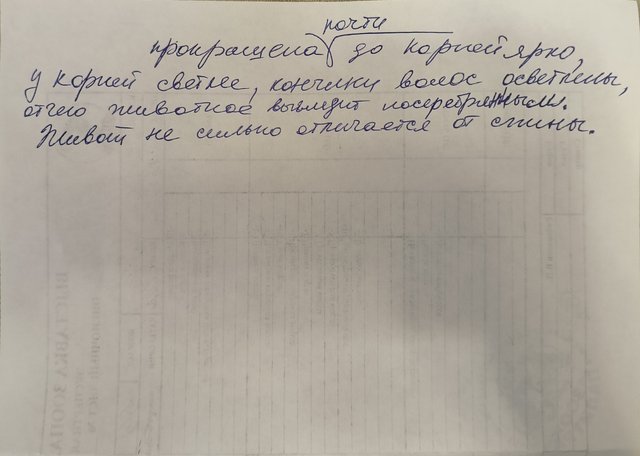 почти
прокращена до корней ярко,
у корней светлее, кончики волос осветлены,
отчего животное выглядит посеребрянным.
Живот не сильно отличается от спины.